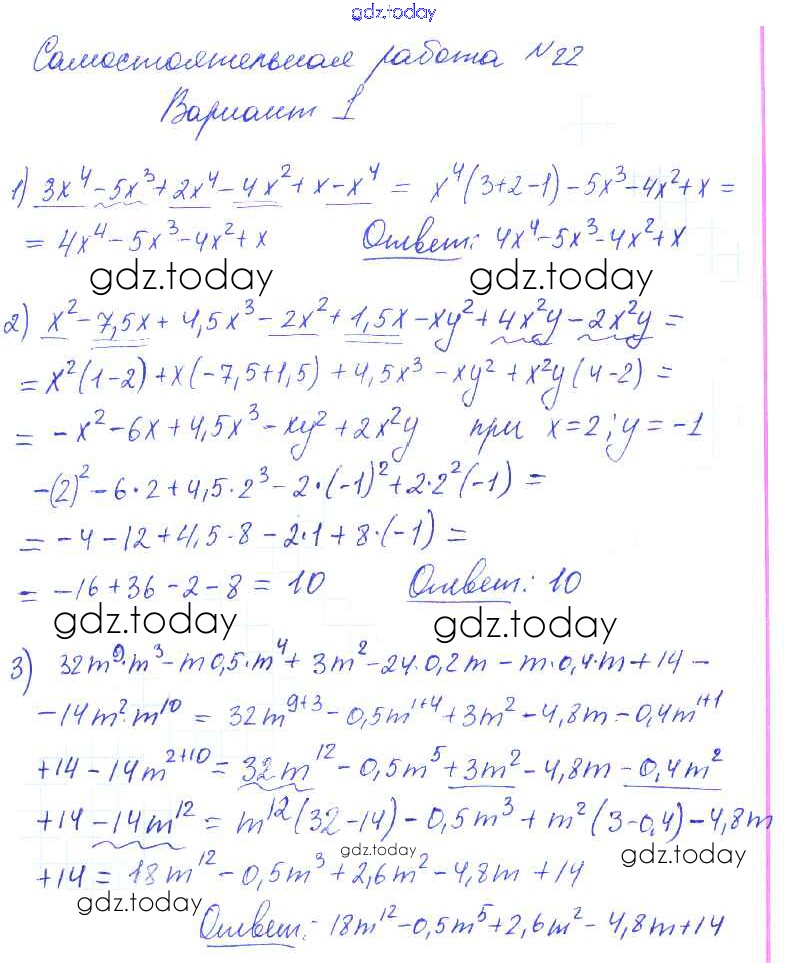 gdz.today
Самостоятельная работа №22
Вариант 1
1) 3x⁴ - 5x³ + 2x⁴ - 4x² + x - x⁴ = x⁴(3+2-1) - 5x³ - 4x² + x =
= 4x⁴ - 5x³ - 4x² + x Ответ: 4x⁴ - 5x³ - 4x² + x
gdz.today gdz.today
2) x² - 7,5x + 4,5x³ - 2x² + 1,5x - xy² + 4x²y - 2x²y =
= x²(1-2) + x(-7,5+1,5) + 4,5x³ - xy² + x²y(4-2) =
= -x² - 6x + 4,5x³ - xy² + 2x²y при x=2; y=-1
-(2)² - 6·2 + 4,5·2³ - 2·(-1)² + 2·2²(-1) =
= -4 - 12 + 4,5·8 - 2·1 + 8·(-1) =
= -16 + 36 - 2 - 8 = 10 Ответ: 10
gdz.today gdz.today
3) 32m⁹·m³ - m0,5·m⁴ + 3m² - 24·0,2m - m·0,4·m + 14 -
-14m²·m¹⁰ = 32m⁹⁺³ - 0,5m¹⁺⁴ + 3m² - 4,8m - 0,4m¹⁺¹
+14 - 14m²⁺¹⁰ = 32m¹² - 0,5m⁵ + 3m² - 4,8m - 0,4m²
+14 - 14m¹² = m¹²(32-14) - 0,5m³ + m²(3-0,4) - 4,8m
gdz.today gdz.today
+14 = 18m¹² - 0,5m³ + 2,6m² - 4,8m + 14
gdz.today
Ответ: 18m¹² - 0,5m⁵ + 2,6m² - 4,8m + 14